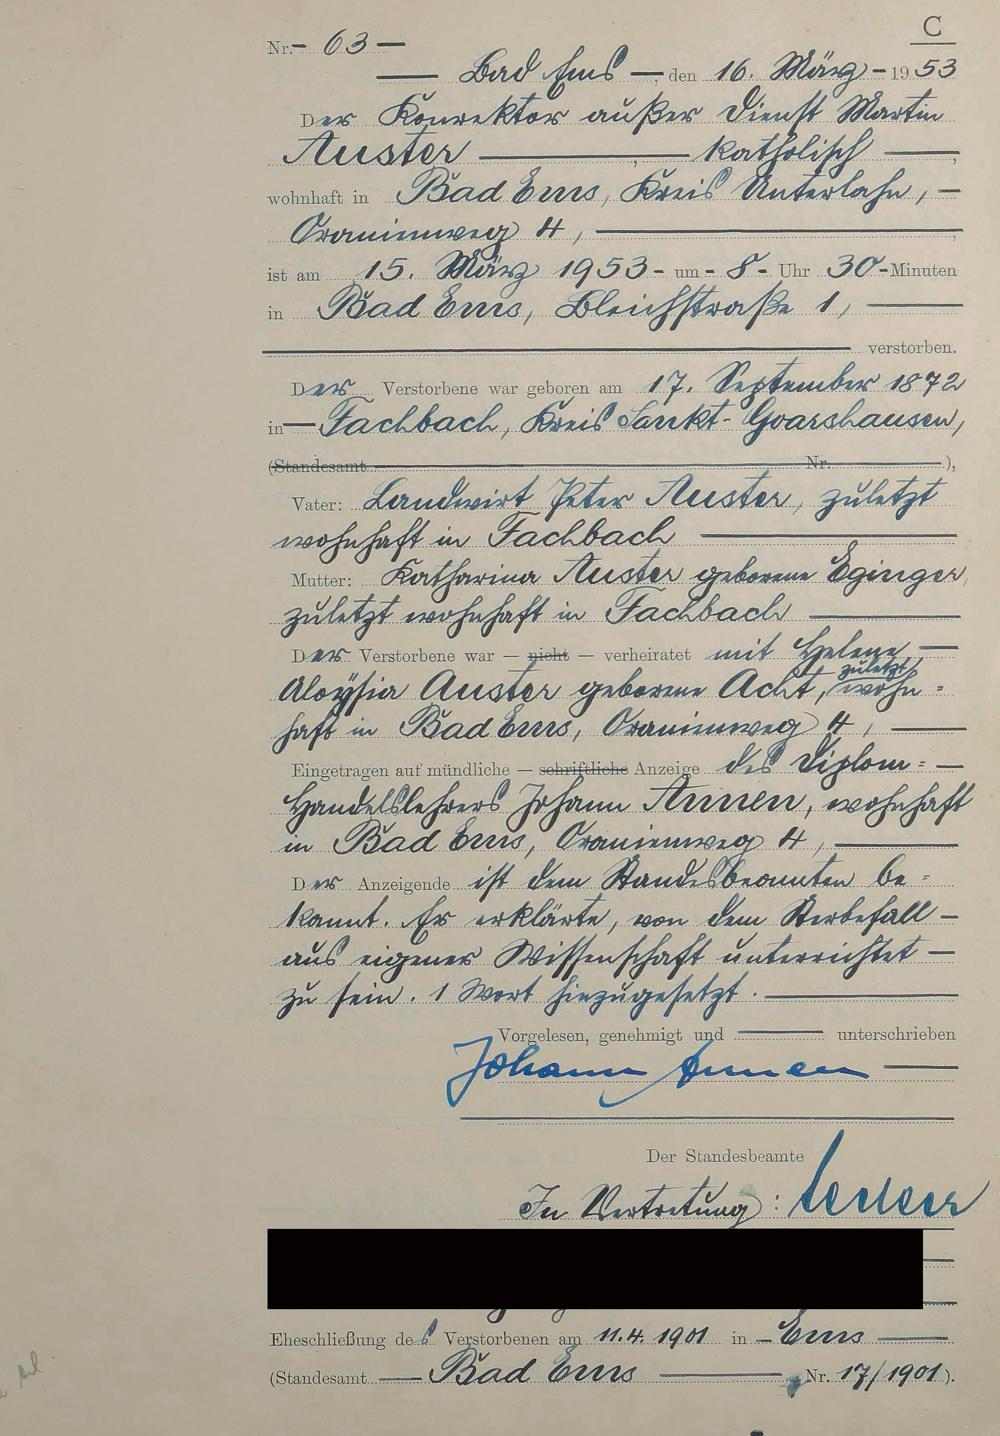 C
Nr. - 63 -
Bad Ems, den 16. März - 1953
Der Konrektor außer Dienst Martin
Auster, katholisch,
wohnhaft in Bad Ems, Kreis Unterlahn, -
Oranienweg 4,
ist am 15. März 1953 - um - 8 - Uhr 30 - Minuten
in Bad Ems, Bleichstraße 1,
verstorben.
Der Verstorbene war geboren am 17. September 1872
in Fachbach, Kreis Sankt-Goarshausen,
(Standesamt Nr. ),
Vater: Landwirt Peter Auster, zuletzt
wohnhaft in Fachbach
Mutter: Katharina Auster geborene Eginger,
zuletzt wohnhaft in Fachbach
Der Verstorbene war — nicht — verheiratet mit Helene
Aloysia Auster geborene Acht, zuletzt wohn=
haft in Bad Ems, Oranienweg 4,
Eingetragen auf mündliche — schriftliche Anzeige des Diplom=
Handelslehrers Johann Annen, wohnhaft
in Bad Ems, Oranienweg 4,
Der Anzeigende ist dem Standesbeamten be=
kannt. Er erklärte, von dem Sterbefall -
aus eigener Wissenschaft unterrichtet -
zu sein. 1 Wort hinzugesetzt.
Vorgelesen, genehmigt und unterschrieben
Johann Annen
Der Standesbeamte
In Vertretung:
Eheschließung des Verstorbenen am 11.4.1901 in Ems
(Standesamt Bad Ems Nr. 17/1901).